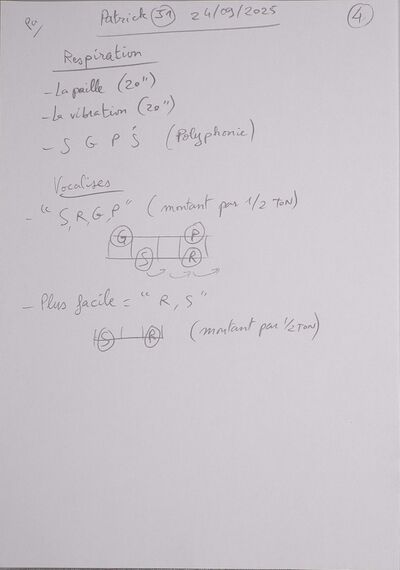 Patrick 51 24/09/2025 4
Respiration
- La paille (20")
- La vibration (20")
- S G P Ś (Polyphonie)
Vocalises
- "S, R, G, P" (montant par 1/2 TON)
G P
S R
- Plus facile = "R, S"
S R (montant par 1/2 TON)